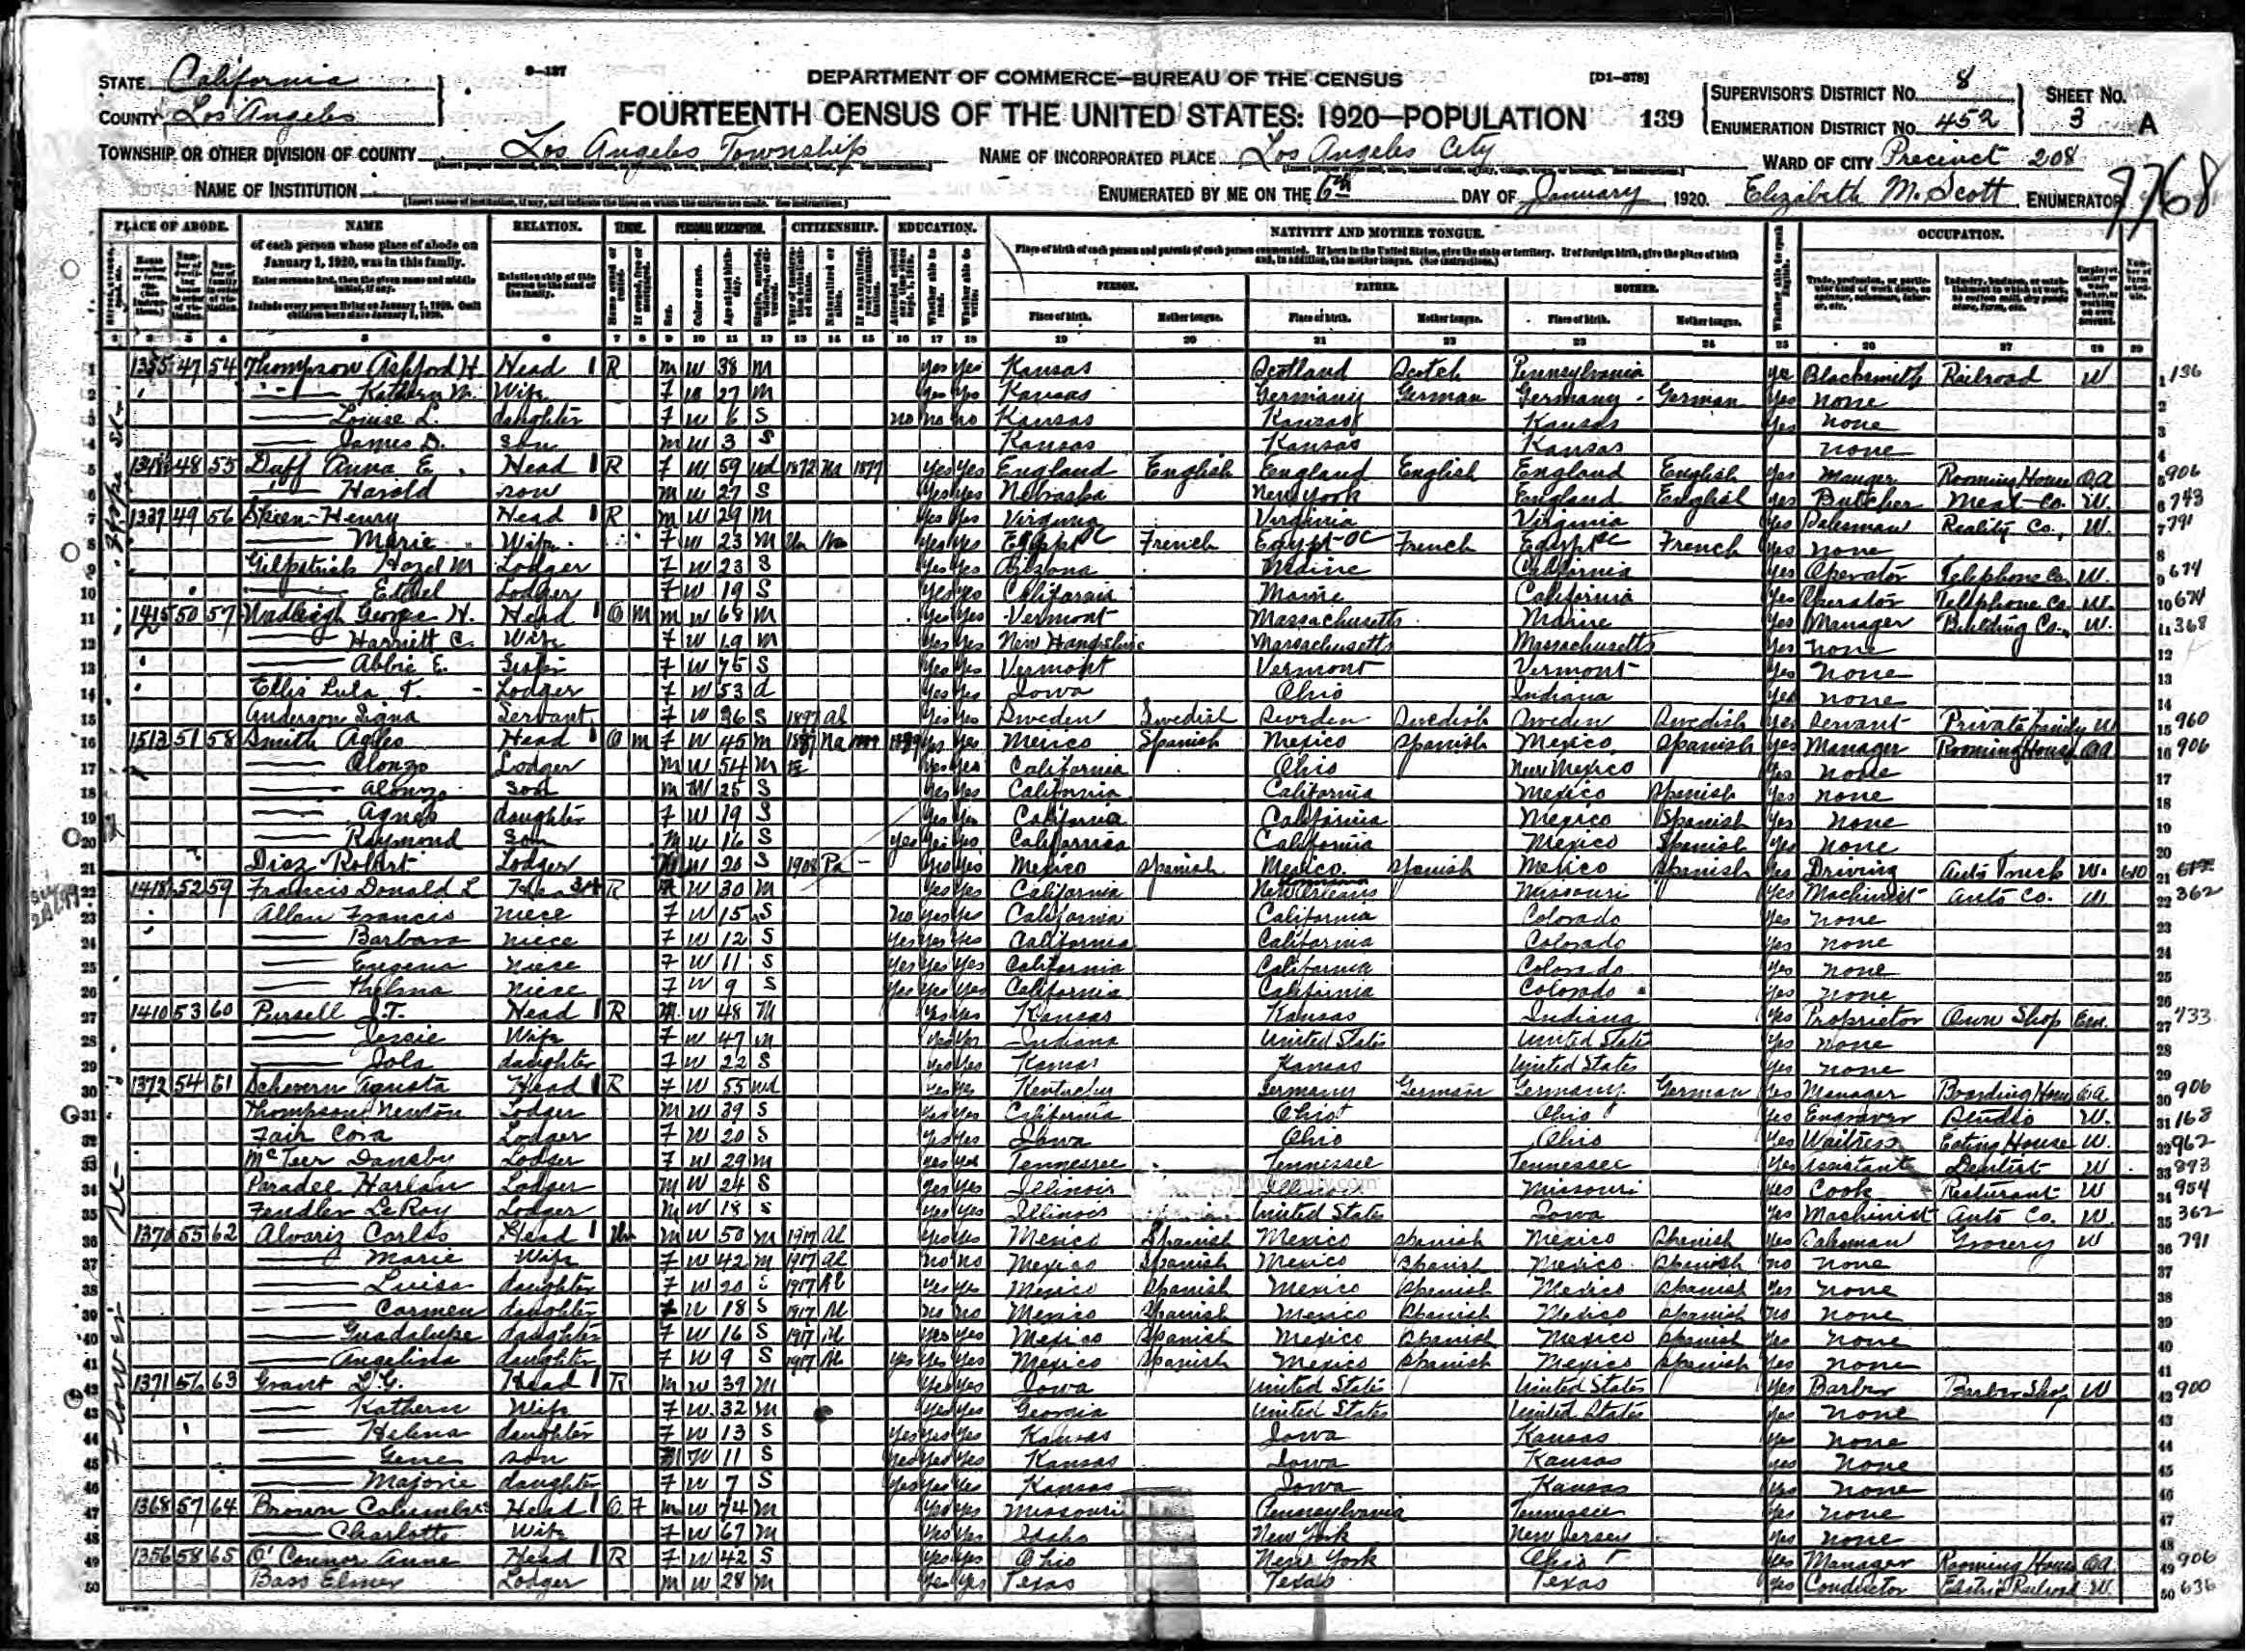 STATE California
COUNTY Los Angeles
9-137
DEPARTMENT OF COMMERCE—BUREAU OF THE CENSUS
[D1-378]
FOURTEENTH CENSUS OF THE UNITED STATES: 1920—POPULATION 139
SUPERVISOR'S DISTRICT NO. 8
ENUMERATION DISTRICT NO. 452
SHEET NO. 3 A
TOWNSHIP OR OTHER DIVISION OF COUNTY Los Angeles Township
NAME OF INCORPORATED PLACE Los Angeles City
WARD OF CITY Precinct 208
7768
NAME OF INSTITUTION
ENUMERATED BY ME ON THE 6th DAY OF January, 1920. Elizabeth M. Scott ENUMERATOR
PLACE OF ABODE. NAME RELATION. PERSONAL DESCRIPTION. CITIZENSHIP. EDUCATION. NATIVITY AND MOTHER TONGUE. OCCUPATION.
of each person whose place of abode on January 1, 1920, was in this family.
PERSON. FATHER. MOTHER.
Place of birth. Mother tongue. Place of birth. Mother tongue. Place of birth. Mother tongue.
1 1355 47 54 Thompson Ashford H. Head 1 R m W 38 m Yes Yes Kansas Scotland Scotch Pennsylvania yes Blacksmith Railroad W 1 136
2 Kathern M. Wife F W 27 m Yes Yes Kansas Germany German Germany German Yes none 2
3 Louise L. daughter F W 6 S no no no Kansas Kansas Kansas Yes none 3
4 James D. son m W 3 S Kansas Kansas Kansas none 4
5 48 55 Duff Anna E. Head 1 R F W 59 wd 1872 Na 1877 Yes Yes England English England English England English Yes Manger Rooming House OA 5 906
6 Harold son m W 27 S Yes Yes Nebraska New York England English yes Butcher Meat Co. W. 6 743
7 1337 49 56 Skeen Henry Head 1 R m W 29 m Yes Yes Virginia Virginia Virginia Yes Salesman Reality Co., W. 7 791
8 Marie Wife F W 23 m Un Yes Yes Egypt French Egypt French Egypt French Yes none 8
9 Gilpatrick Hazel M Lodger F W 23 S Yes Yes Arizona Maine California Yes Operator Telephone Co. W. 9 674
10 Ethel Lodger F W 19 S Yes Yes California Maine California Yes Operator Telephone Co. W. 10 674
11 1415 50 57 Wadleigh George H. Head 1 O M m W 68 m Yes Yes Vermont Massachusetts Maine Yes Manager Building Co., W. 11 368
12 Harriett C. Wife F W 69 m Yes Yes New Hampshire Massachusetts Massachusetts Yes none 12
13 Abbie E. Sister F W 75 S Yes Yes Vermont Vermont Vermont Yes None 13
14 Ellis Lula T. Lodger F W 53 d Yes Yes Iowa Ohio Indiana Yes none 14
15 Anderson Signa Servant F W 36 S 1897 al Yes Yes Sweden Swedish Sweden Swedish Sweden Swedish Yes Servant Private Family W 15 960
16 1513 51 58 Smith Head 1 O M F W 45 m Na Yes Yes Mexico Spanish Mexico Spanish Mexico Spanish Yes Manager Rooming House OA 16 906
17 Alonzo Lodger m W 54 m Yes Yes California Ohio New Mexico Yes none 17
18 Alonzo son m W 25 S Yes Yes California California Mexico Spanish Yes none 18
19 Agnes daughter F W 19 S Yes Yes California California Mexico Spanish Yes none 19
20 Raymond Son m W 16 S yes Yes Yes California California Mexico Spanish Yes none 20
21 Diaz Robert Lodger W 20 S 1908 Pa Yes Yes Mexico Spanish Mexico Spanish Mexico Spanish Yes Driving Auto Truck W. 610 21
22 1418 52 59 Francis Donald L Head R W 30 m Yes Yes California Missouri Yes Machinist Auto Co. W 22 362
23 Allan Francis niece F W 15 S no Yes Yes California California Colorado Yes none 23
24 Barbara niece F W 12 S Yes Yes Yes California California Colorado Yes none 24
25 Eugenia niece F W 11 S Yes Yes Yes California California Colorado Yes none 25
26 Thelma niece F W 9 S Yes Yes Yes California California Colorado Yes none 26
27 1410 53 60 Pursell J.T. Head 1 R M W 48 M Yes Yes Kansas Kansas Indiana Yes Proprietor Own Shop Em. 27 733
28 Jessie Wife F W 47 m Yes Yes Indiana United States United States Yes none 28
29 Iola daughter F W 22 S Yes Yes Kansas Kansas United States Yes none 29
30 1372 54 61 Schevern Agusta Head 1 R F W 55 wd Yes Yes Kentucky Germany German Germany German Yes Manager Boarding House OA 30 906
31 Thompson Newton Lodger m W 39 S Yes Yes California Ohio Ohio Yes Engraver Studio W. 31 168
32 Fair Cora Lodger F W 20 S Yes Yes Iowa Ohio Ohio Yes Waitress Eating House W. 32 962
33 McTeer Dansby Lodger F W 29 m Yes Yes Tennessee Tennessee Tennessee Yes Assistant Dentist W 33 893
34 Paradee Harlan Lodger M W 24 S Yes Yes Illinois Illinois Missouri Yes Cook Resturant W 34 954
35 Fendler LeRoy Lodger m W 18 S Yes Yes Illinois United States Iowa Yes Machinist Auto Co. W. 35 362
36 1370 55 62 Alvariz Carlos Head 1 Un m W 50 m 1917 al Yes Yes Mexico Spanish Mexico Spanish Mexico Spanish Yes Salesman Grocery W 36 791
37 Marie Wife F W 42 m 1917 al no no Mexico Spanish Mexico Spanish Mexico Spanish no none 37
38 Luisa daughter F W 20 S 1917 al Yes Yes Mexico Spanish Mexico Spanish Mexico Spanish Yes none 38
39 Carmen daughter F W 18 S 1917 al no no Mexico Spanish Mexico Spanish Mexico Spanish no none 39
40 Guadalupe daughter F W 16 S 1917 al Yes Yes Mexico Spanish Mexico Spanish Mexico Spanish Yes none 40
41 Angelina daughter F W 9 S 1917 al Yes Yes Yes Mexico Spanish Mexico Spanish Mexico Spanish Yes none 41
42 1371 56 63 Grant L.G. Head 1 R m W 39 m Yes Yes Iowa United States United States Yes Barber Barber Shop W 42 900
43 Kathern Wife F W 32 m Yes Yes Georgia United States United States Yes none 43
44 Helena daughter F W 13 S Yes Yes Yes Kansas Iowa Kansas Yes none 44
45 Gene son M W 11 S Yes Yes Yes Kansas Iowa Kansas Yes none 45
46 Majorie daughter F W 7 S Yes Yes Yes Kansas Iowa Kansas Yes none 46
47 1368 57 64 Brown Columbus Head 1 O F m W 74 m Yes Yes Missouri Pennsylvania Tennessee Yes none 47
48 Charlotte Wife F W 67 m Yes Yes Idaho New York New Jersey Yes none 48
49 1356 58 65 O'Connor Anne Head 1 R F W 42 S Yes Yes Ohio New York Ohio Yes Manager Rooming House OA 49 906
50 Bass Elmer Lodger m W 28 m Yes Yes Texas Texas Texas Yes Conductor Electric Railroad W. 50 636
Flower St
MyFamily.com